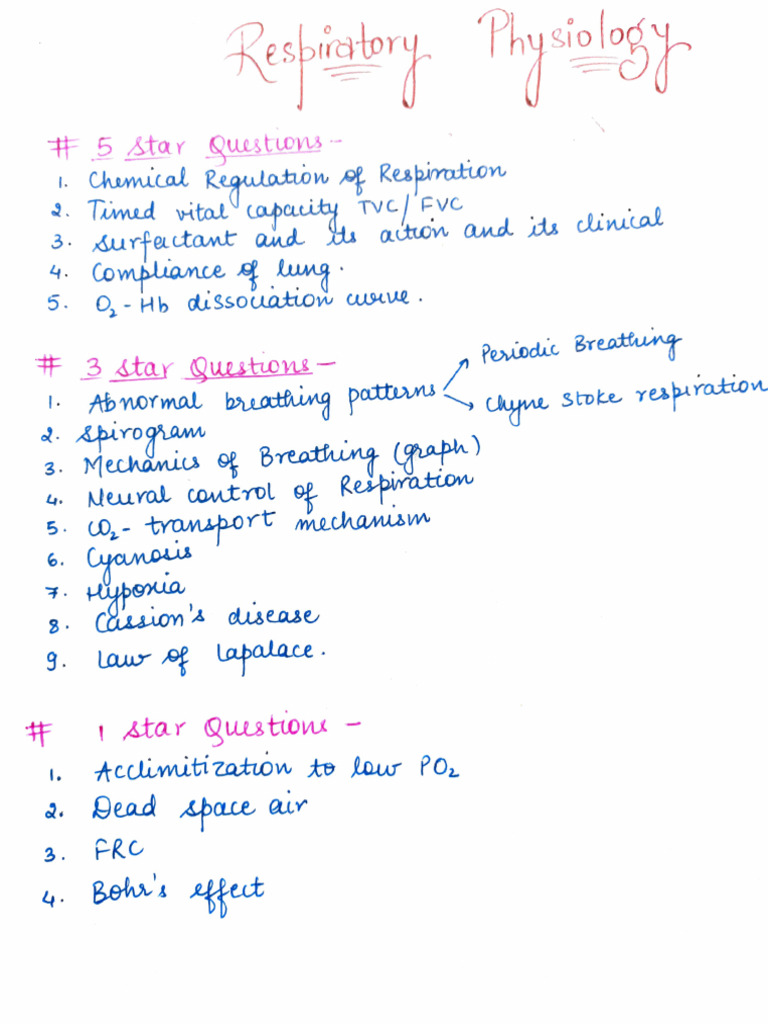 Respiratory Physiology
# 5 Star Questions -
1. Chemical Regulation of Respiration
2. Timed vital capacity TVC/FVC
3. Surfactant and its action and its clinical
4. Compliance of lung.
5. O₂-Hb dissociation curve.
# 3 Star Questions -
Periodic Breathing
1. Abnormal breathing patterns
Chyne Stoke respiration
2. Spirogram
3. Mechanics of Breathing (graph)
4. Neural control of Respiration
5. CO₂- transport mechanism
6. Cyanosis
7. Hypoxia
8. Cassion's disease
9. Law of Lapalace.
# 1 Star Questions -
1. Acclimitization to low PO₂
2. Dead space air
3. FRC
4. Bohr's effect